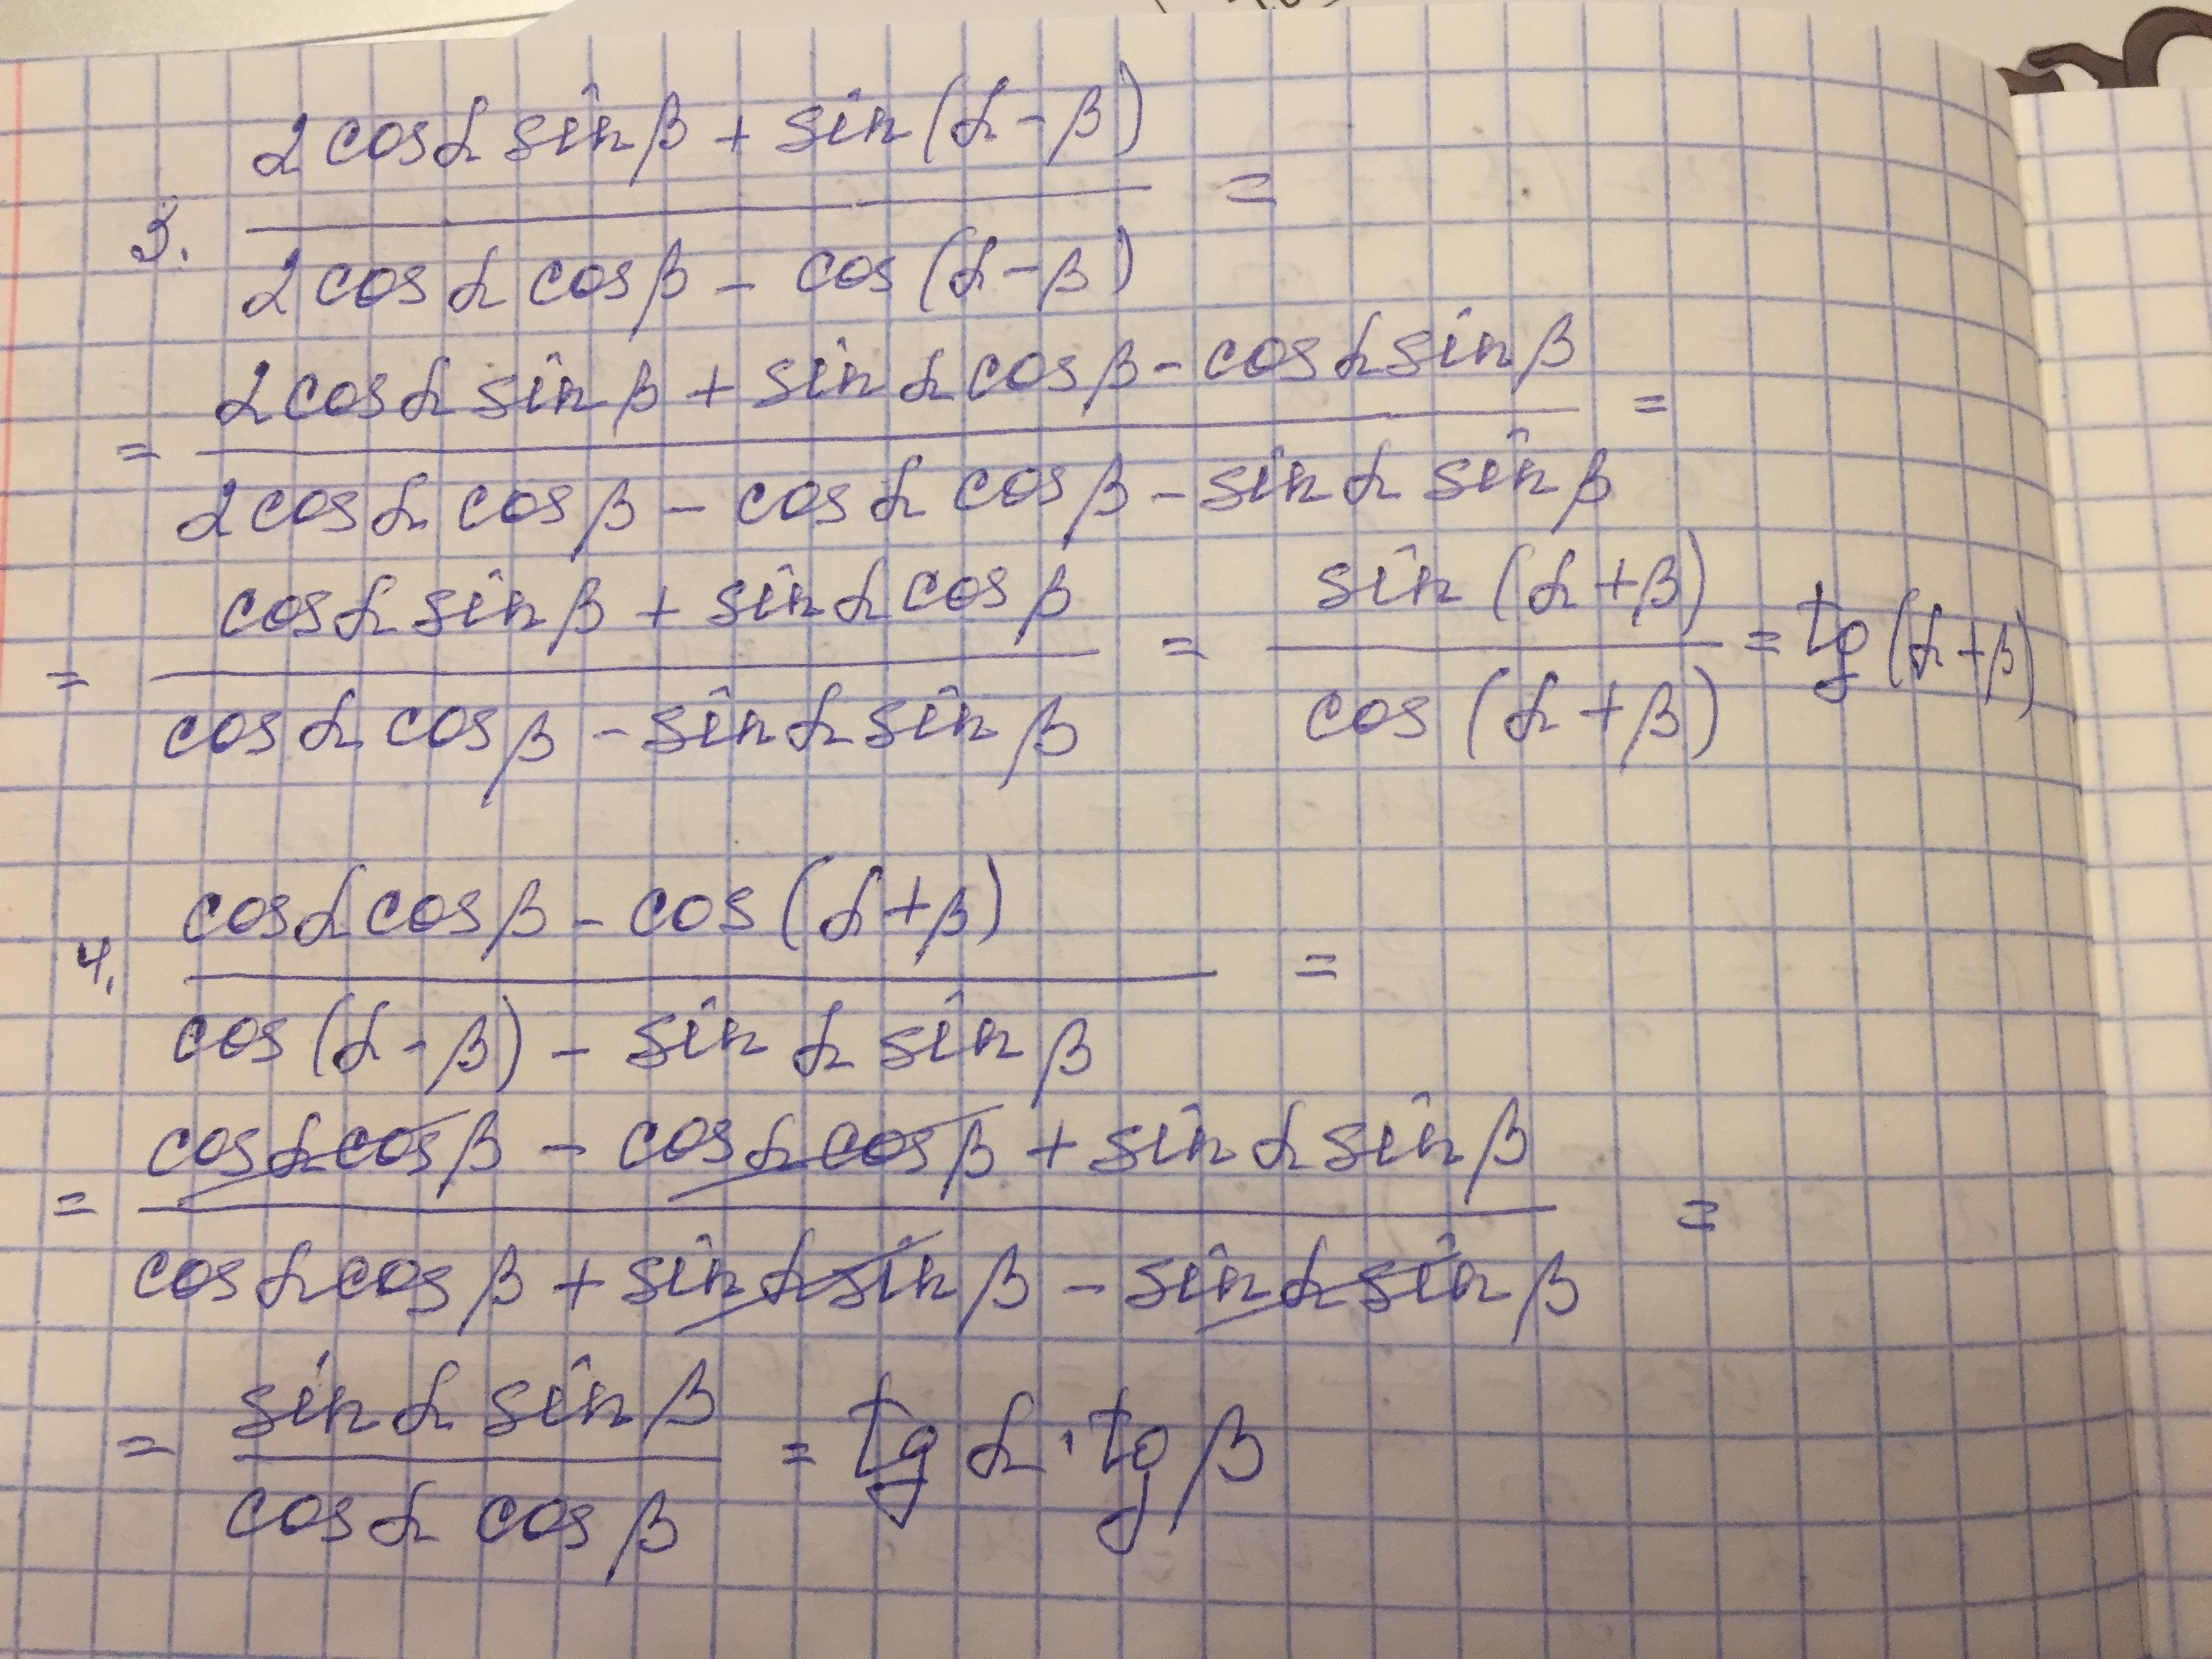 3. (2cosα sinβ + sin(α-β)) / (2cosα cosβ - cos(α-β)) =
= (2cosα sinβ + sinα cosβ - cosα sinβ) / (2cosα cosβ - cosα cosβ - sinα sinβ) =
= (cosα sinβ + sinα cosβ) / (cosα cosβ - sinα sinβ) = sin(α+β) / cos(α+β) = tg(α+β)
4. (cosα cosβ - cos(α+β)) / (cos(α-β) - sinα sinβ) =
= (cosα cosβ - cosα cosβ + sinα sinβ) / (cosα cosβ + sinα sinβ - sinα sinβ) =
= (sinα sinβ) / (cosα cosβ) = tgα · tgβ